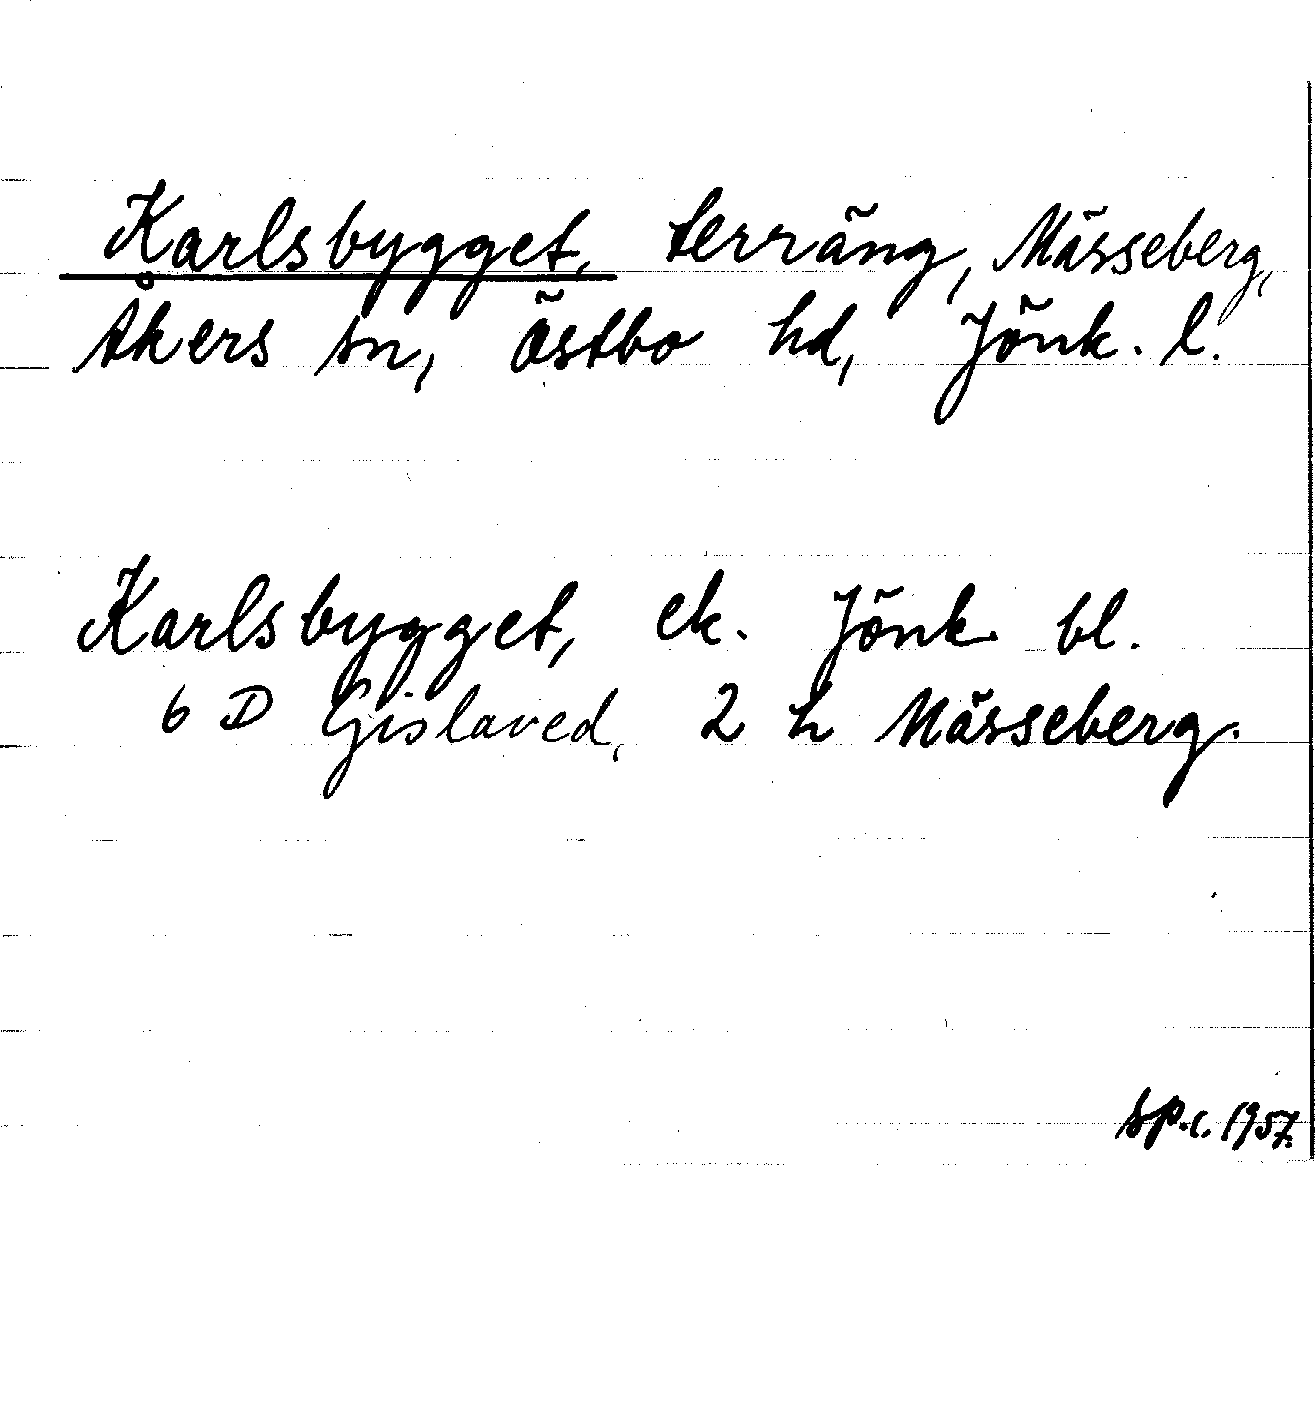 Karlsbygget, terräng, Mässeberg,
Åkers sn, Östbo hd, Jönk. l.
Karlsbygget, ek. Jönk bl.
6 D Gislaved, 2 h Mässeberg.
Sp. c. 1957.